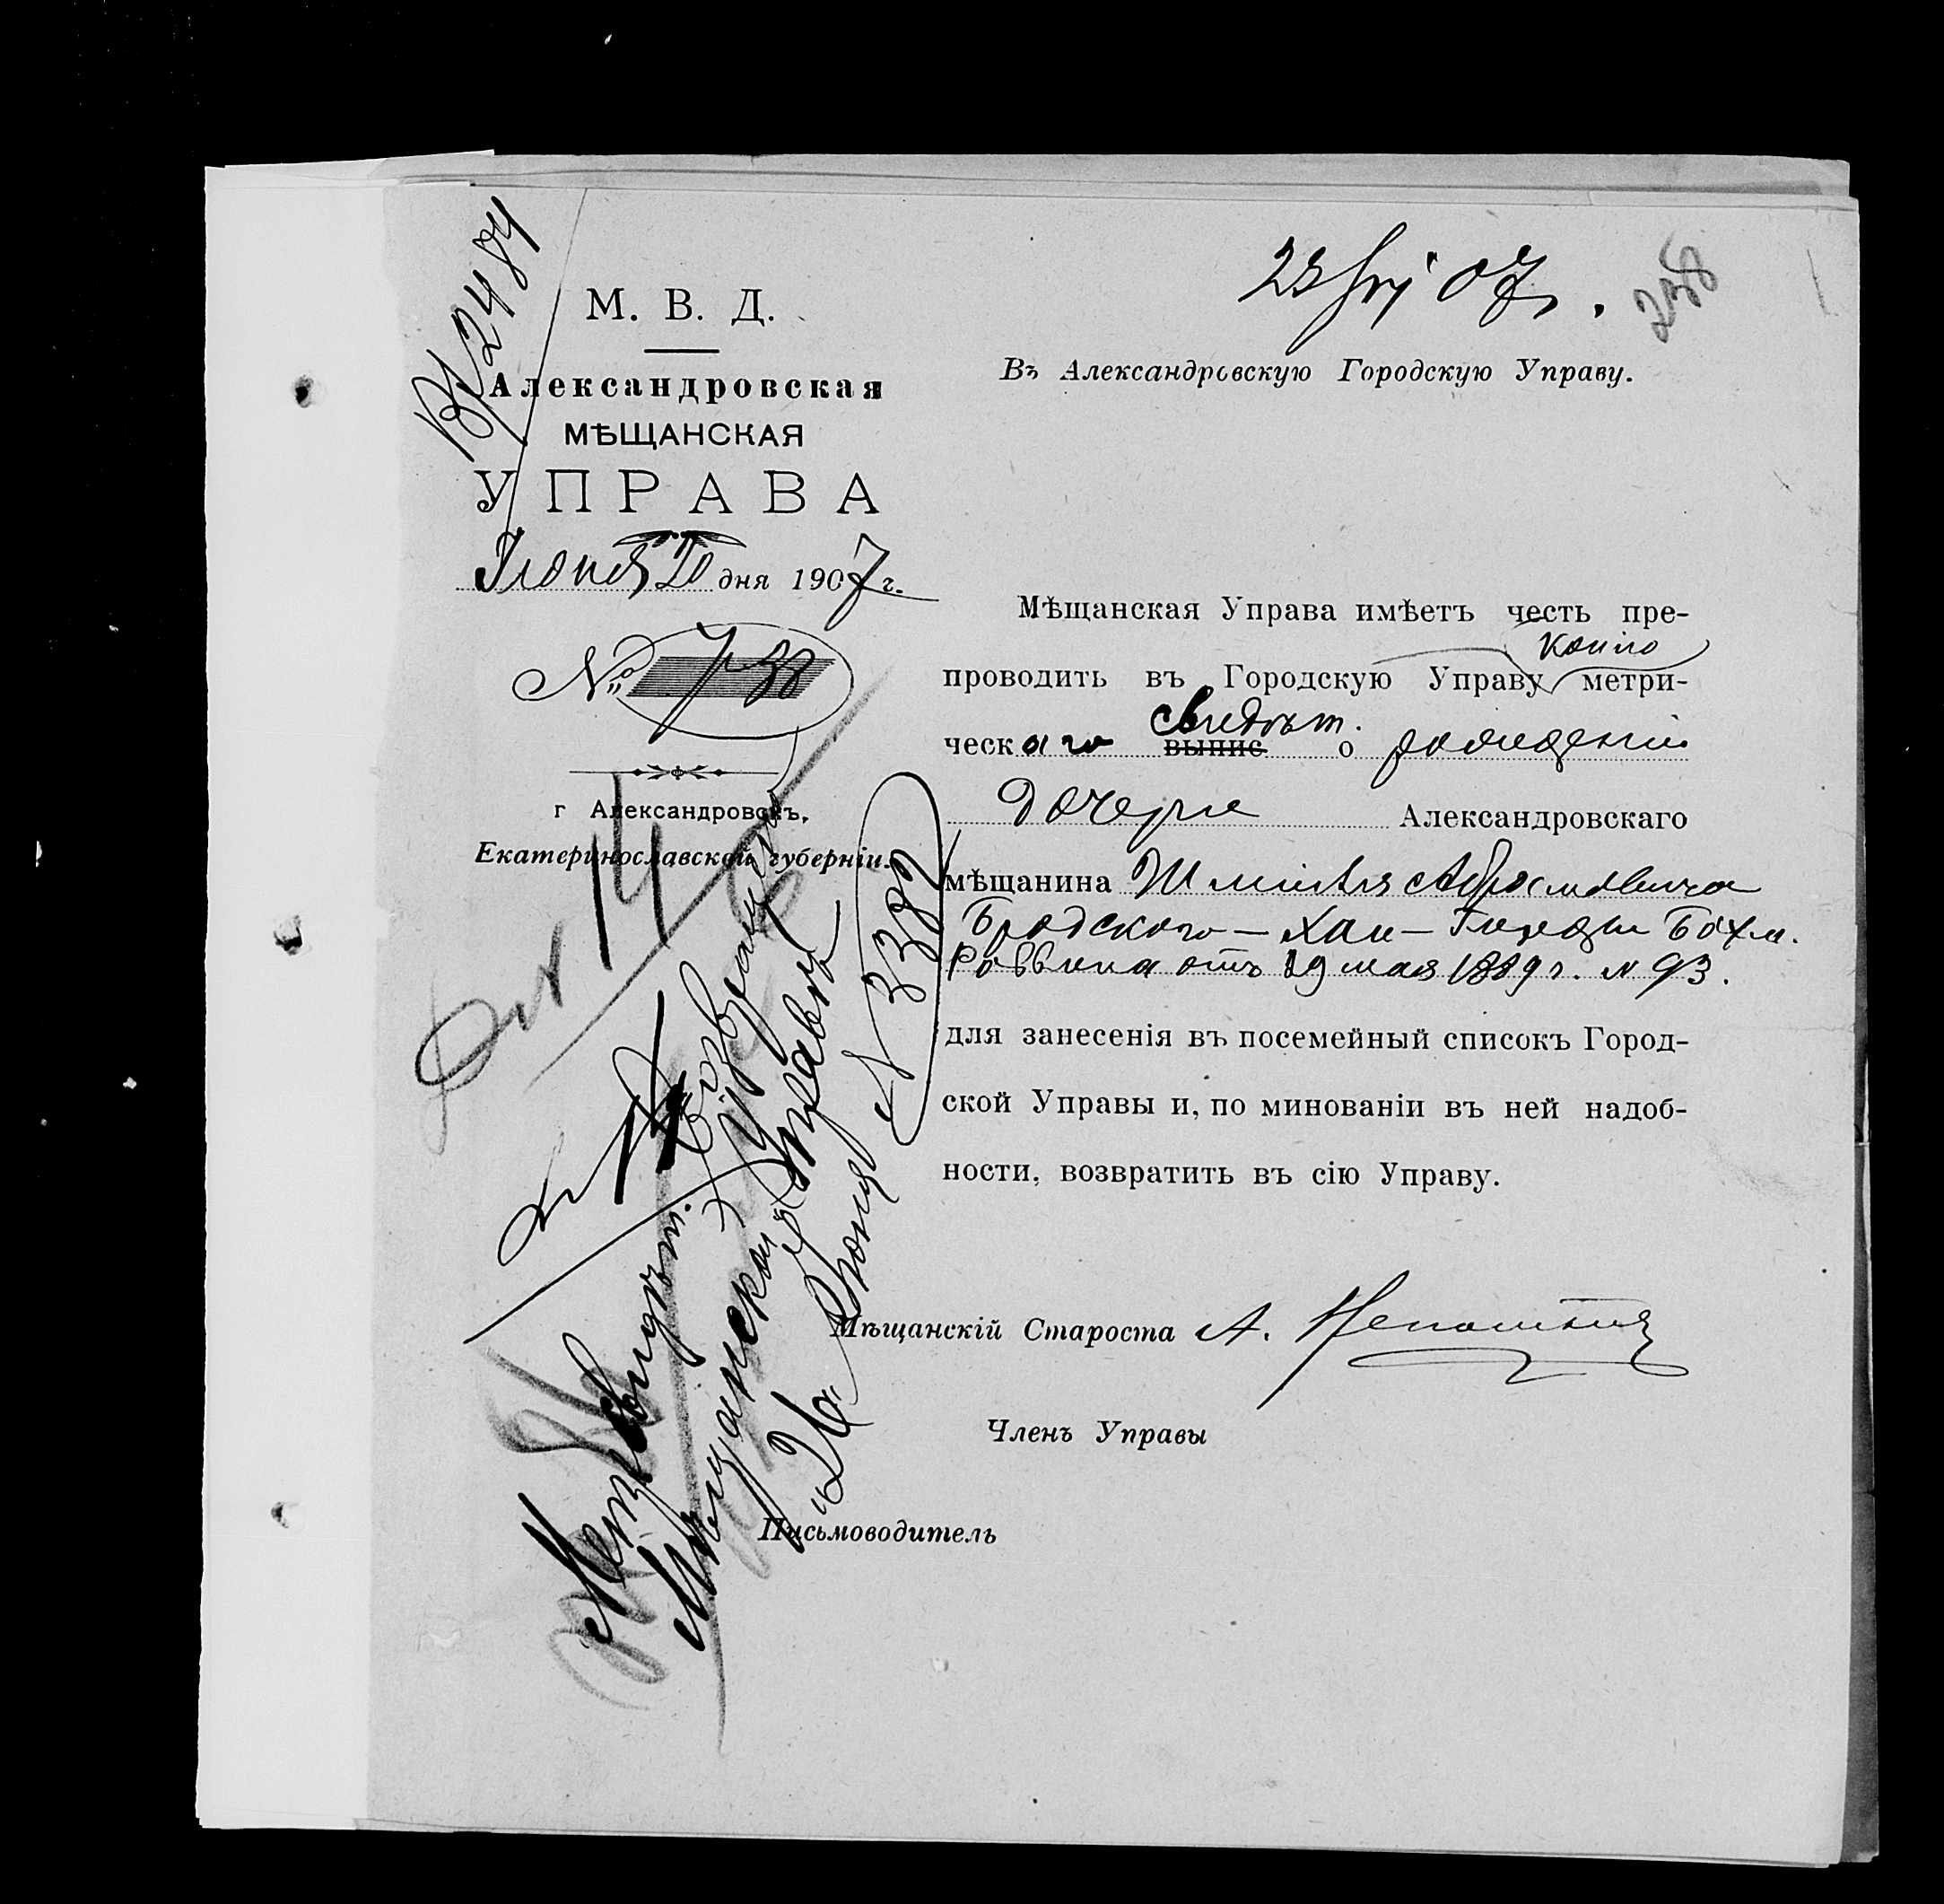 Вх 2484
М. В. Д.
Александровская
МѢЩАНСКАЯ
УПРАВА
Іюня 20 дня 1907 г.
№ 738
г Александровскъ,
Екатеринославской губерніи.
07
258
Въ Александровскую Городскую Управу.
Мѣщанская Управа имѣетъ честь пре-
копію
проводить въ Городскую Управу метри-
свидѣт.
ческаго выпис о рожденіи
дочери Александровскаго
мѣщанина Абрамовича
Бродского — Хаи —
Раввина отъ 19 мая 1889 г. № 93.
для занесенія въ посемейный списокъ Город-
ской Управы и, по минованіи въ ней надоб-
ности, возвратить въ сію Управу.
Мѣщанскій Староста А.
Членъ Управы
Письмоводитель
14
Метр свидѣт. возвращено
Мѣщанской Управѣ
26 Іюня № 3382